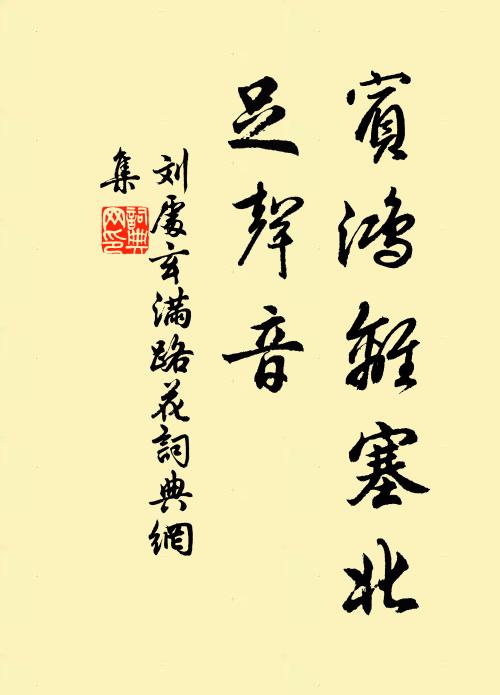 賓鴻離塞北
足聲音
刘處玄滿路花詞典網
集
詞典網